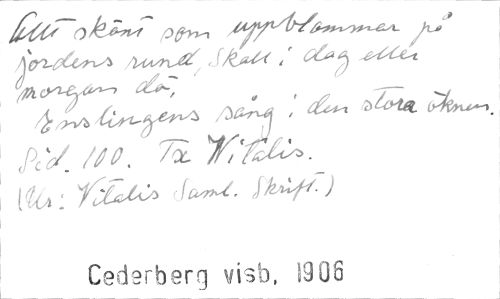 Allt skönt som uppblommar på
jordens rund, Skall i dag eller
morgon dö,
Enslingens sång i den stora öknen.
Sid. 100. Tx Vitalis.
(Ur: Vitalis Saml. Skrift.)
Cederberg visb, 1906